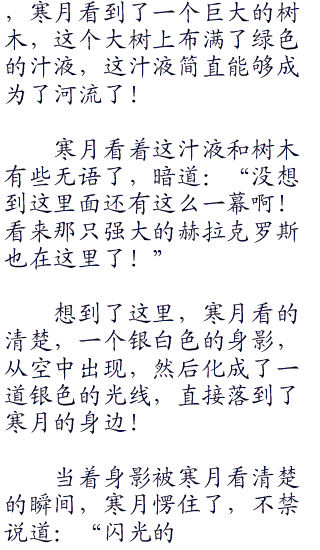 ，寒月看到了一个巨大的树
木，这个大树上布满了绿色
的汁液，这汁液简直能够成
为了河流了！
寒月看着这汁液和树木
有些无语了，暗道：“没想
到这里面还有这么一幕啊！
看来那只强大的赫拉克罗斯
也在这里了！”
想到了这里，寒月看的
清楚，一个银白色的身影，
从空中出现，然后化成了一
道银色的光线，直接落到了
寒月的身边！
当着身影被寒月看清楚
的瞬间，寒月愣住了，不禁
说道：“闪光的